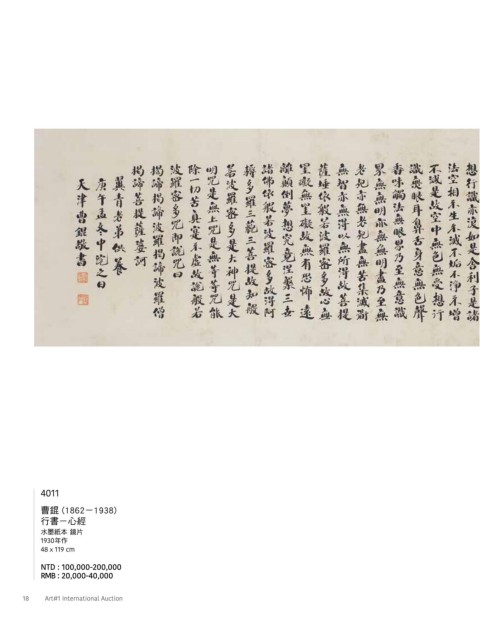 想行識亦復如是舍利子是諸
法空相不生不滅不垢不淨不增
不減是故空中無色無受想行
識無眼耳鼻舌身意無色聲
香味觸法無眼界乃至無意識
界無無明亦無無明盡乃至無
老死亦無老死盡無苦集滅道
無智亦無得以無所得故菩提
薩埵依般若波羅蜜多故心無
罣礙無罣礙故無有恐怖遠
離顛倒夢想究竟涅槃三世
諸佛依般若波羅蜜多故得阿
耨多羅三藐三菩提故知般
若波羅蜜多是大神咒是大
明咒是無上咒是無等等咒能
除一切苦真實不虛故說般若
波羅蜜多咒即說咒曰
揭諦揭諦波羅揭諦波羅僧
揭諦菩提薩婆訶
冀青老弟供養
庚午孟冬中浣之日
天津曹錕敬書
4011
曹錕（1862－1938）
行書－心經
水墨紙本 鏡片
1930年作
48 x 119 cm
NTD : 100,000-200,000
RMB : 20,000-40,000
18 Art#1 International Auction